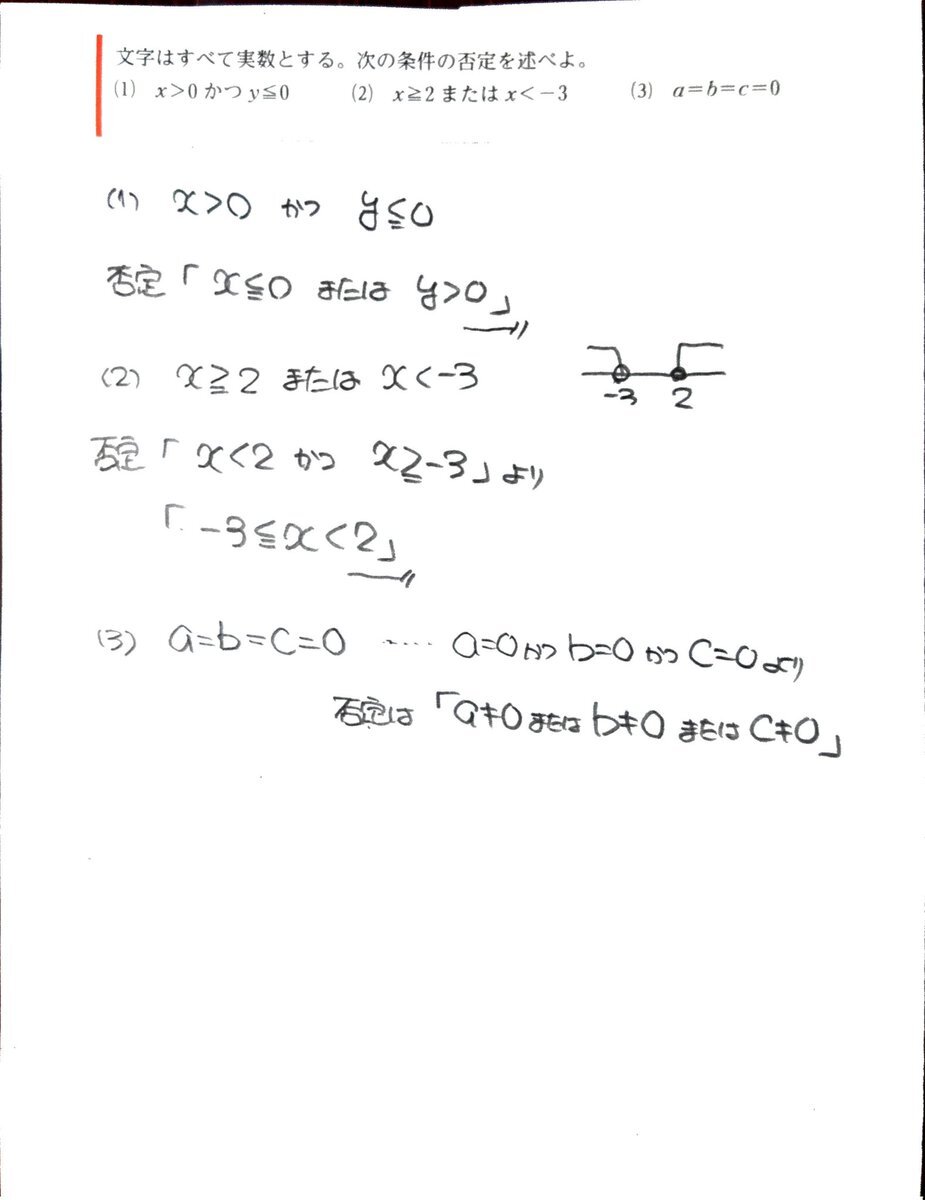 文字はすべて実数とする。次の条件の否定を述べよ。
(1) x>0 かつ y≦0 (2) x≧2 または x<−3 (3) a=b=c=0
(1) x>0 かつ y≦0
否定「x≦0 または y>0」
(2) x≧2 または x<-3
-3 2
否定「x<2 かつ x≧-3」より
「-3≦x<2」
(3) a=b=c=0 ····· a=0かつb=0かつc=0より
否定は「a≠0またはb≠0またはc≠0」